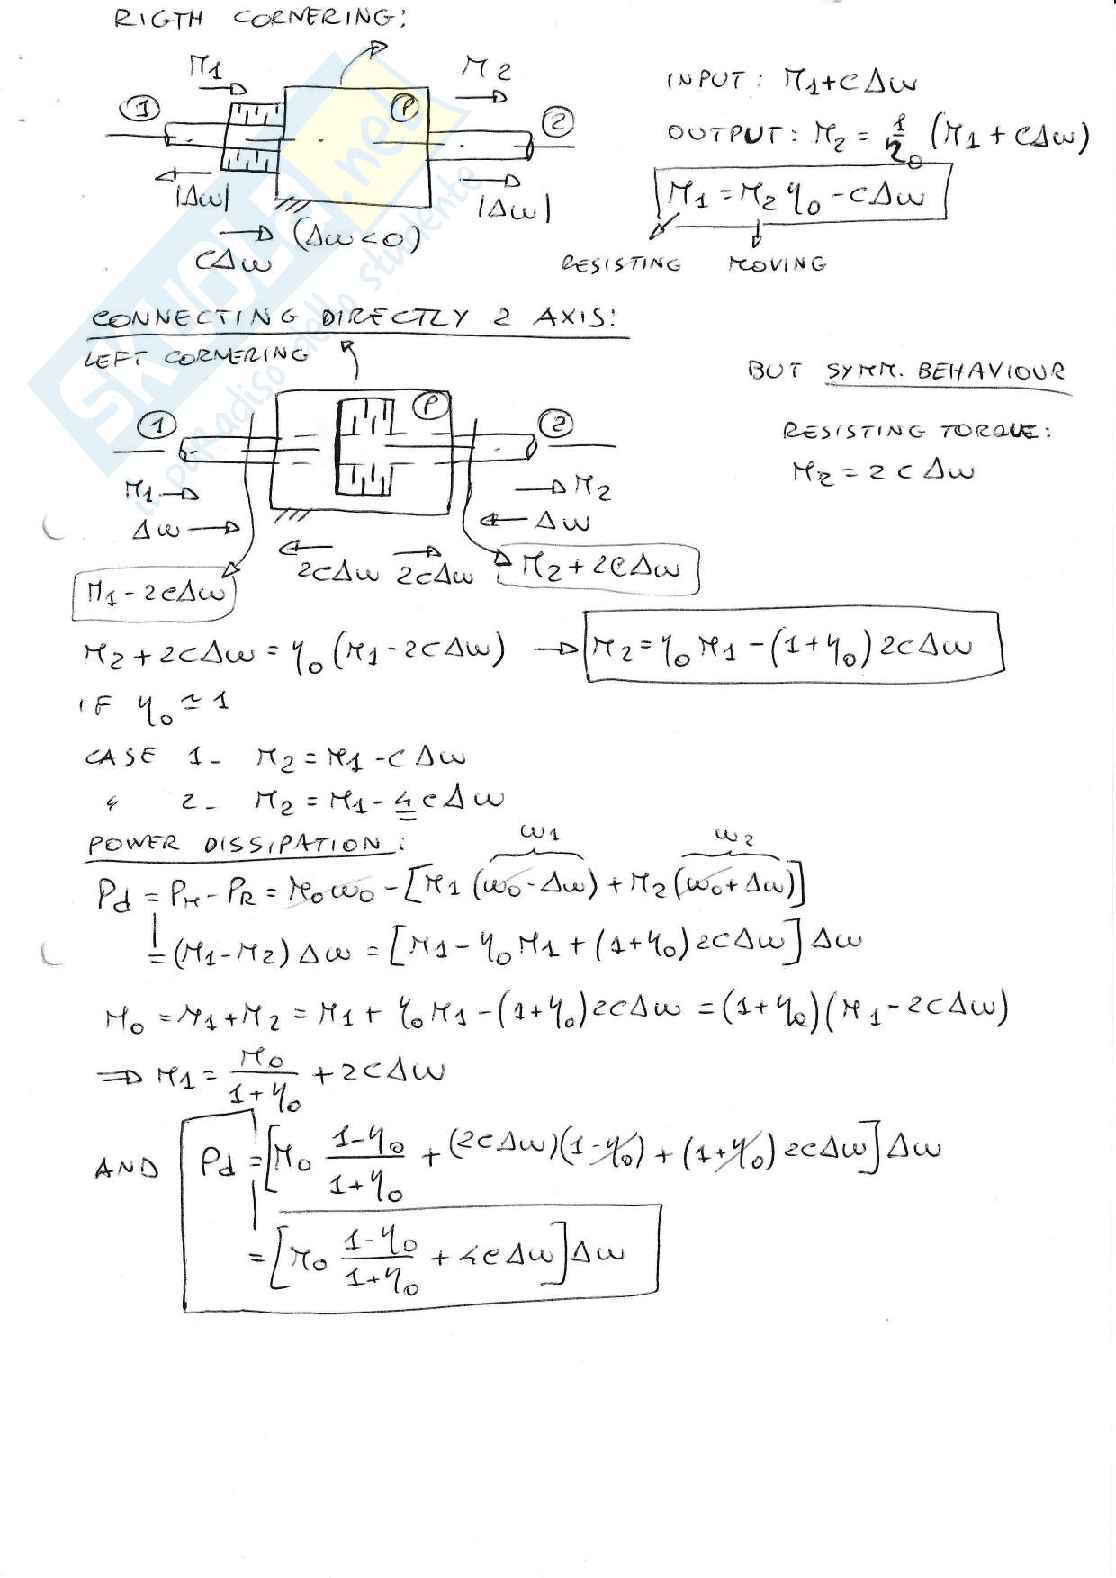 RIGTH CORNERING:
M1 M2
1 P 2
|Δω| |Δω|
cΔω (Δω<0)
INPUT: M1+cΔω
OUTPUT: M2 = 1/η0 (M1+cΔω)
M1 = M2 η0 - cΔω
RESISTING MOVING
CONNECTING DIRECTLY 2 AXIS:
LEFT CORNERING
BUT SYMM. BEHAVIOUR
1 P 2
RESISTING TORQUE:
MR = 2cΔω
M1 M2
Δω Δω
2cΔω 2cΔω
M1-2cΔω M2+2cΔω
M2+2cΔω = η0(M1-2cΔω) → M2 = η0 M1-(1+η0)2cΔω
IF η0 ≃ 1
CASE 1- M2 = M1-cΔω
" 2- M2 = M1-4cΔω
POWER DISSIPATION: ω1 ω2
Pd = PM-PR = M0ω0-[M1(ω0-Δω)+M2(ω0+Δω)]
= (M1-M2)Δω = [M1-η0M1+(1+η0)2cΔω]Δω
M0 = M1+M2 = M1+η0M1-(1+η0)2cΔω = (1+η0)(M1-2cΔω)
⇒ M1 = M0/(1+η0) + 2cΔω
AND Pd = [M0 (1-η0)/(1+η0) + (2cΔω)(1-η0)+(1+η0)2cΔω]Δω
= [M0 (1-η0)/(1+η0) + 4cΔω]Δω
SKUOLA.net
il paradiso dello studente